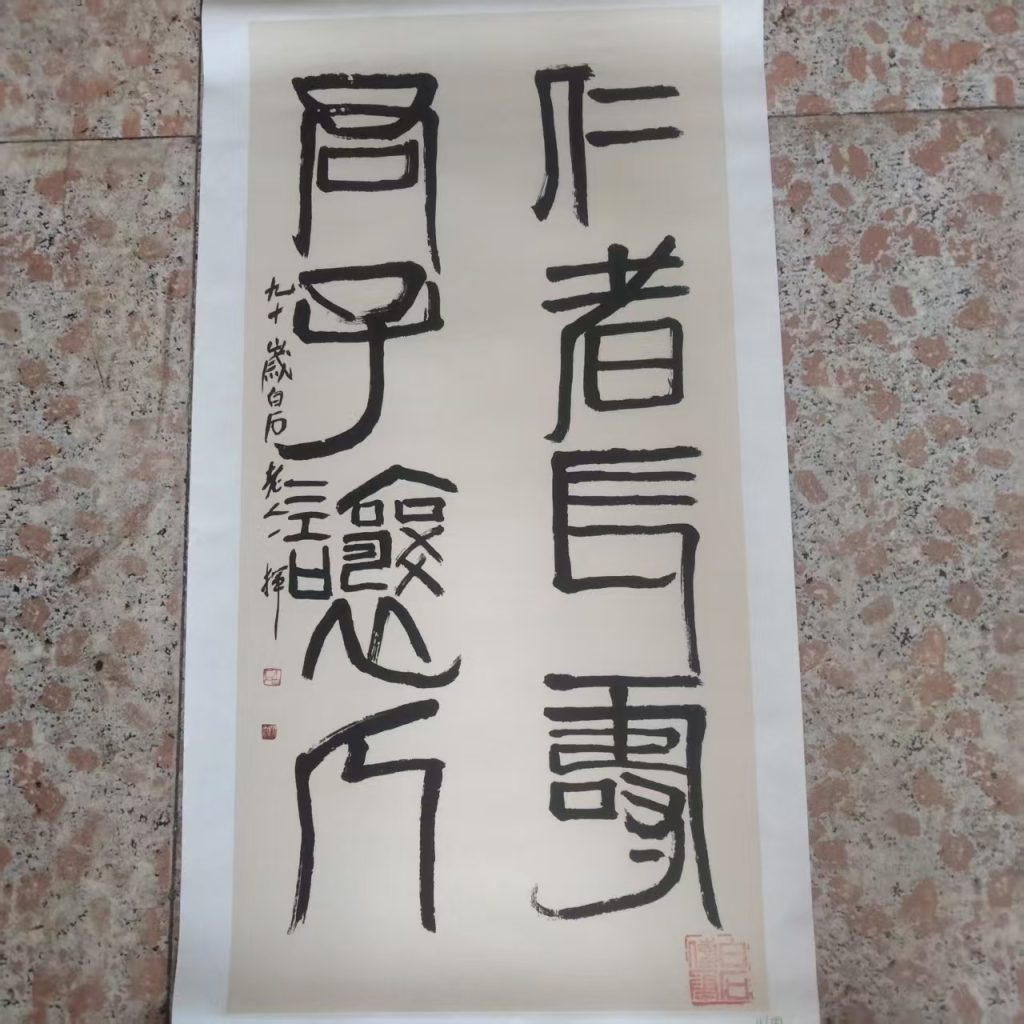 仁者長壽
君子讓人
九十歲白石老人揮